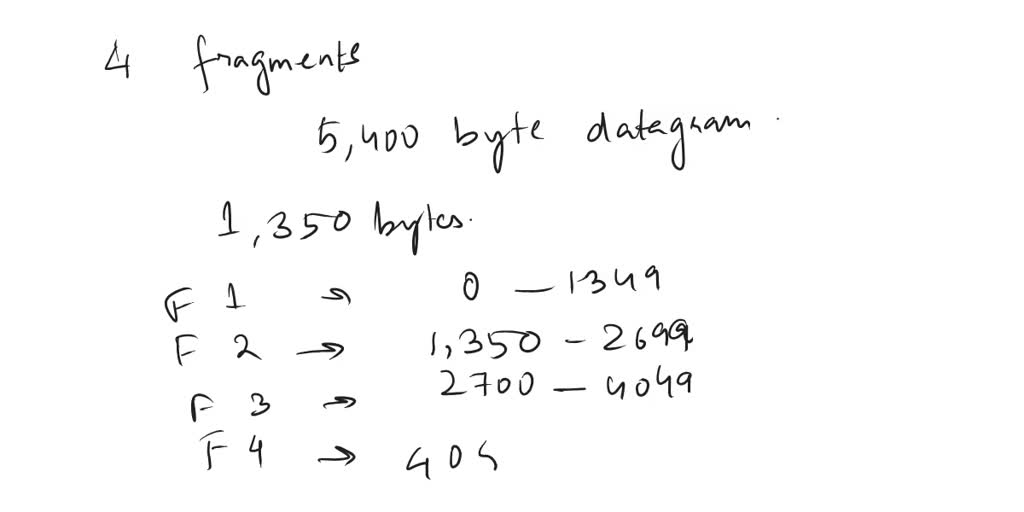 4 fragments
5,400 byte datagram.
1,350 bytes.
F 1 → 0 — 1349
F 2 → 1,350 - 2699
F 3 → 2700 — 4049
F 4 → 405